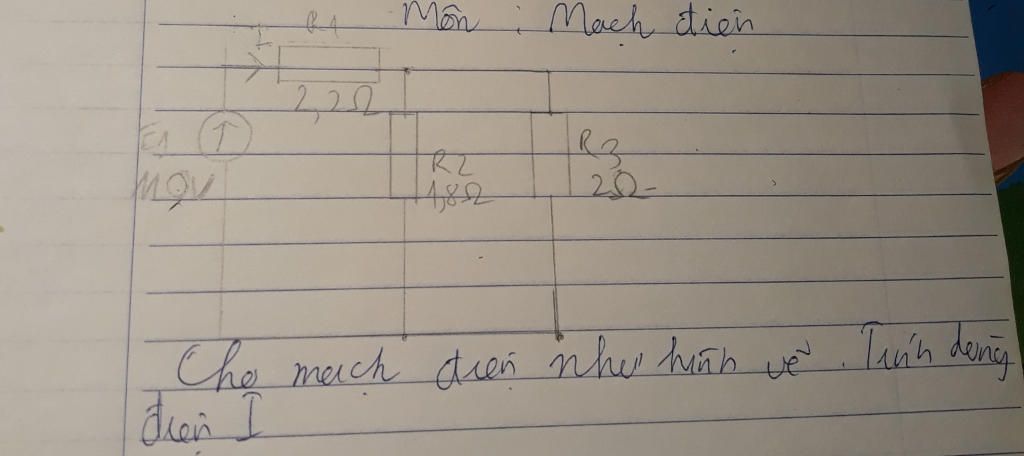 Môn : Mạch điện
I
R1
2,2Ω
E1
R2
1,8Ω
R3
2Ω
Cho mạch điện như hình vẽ. Tính dòng
điện I